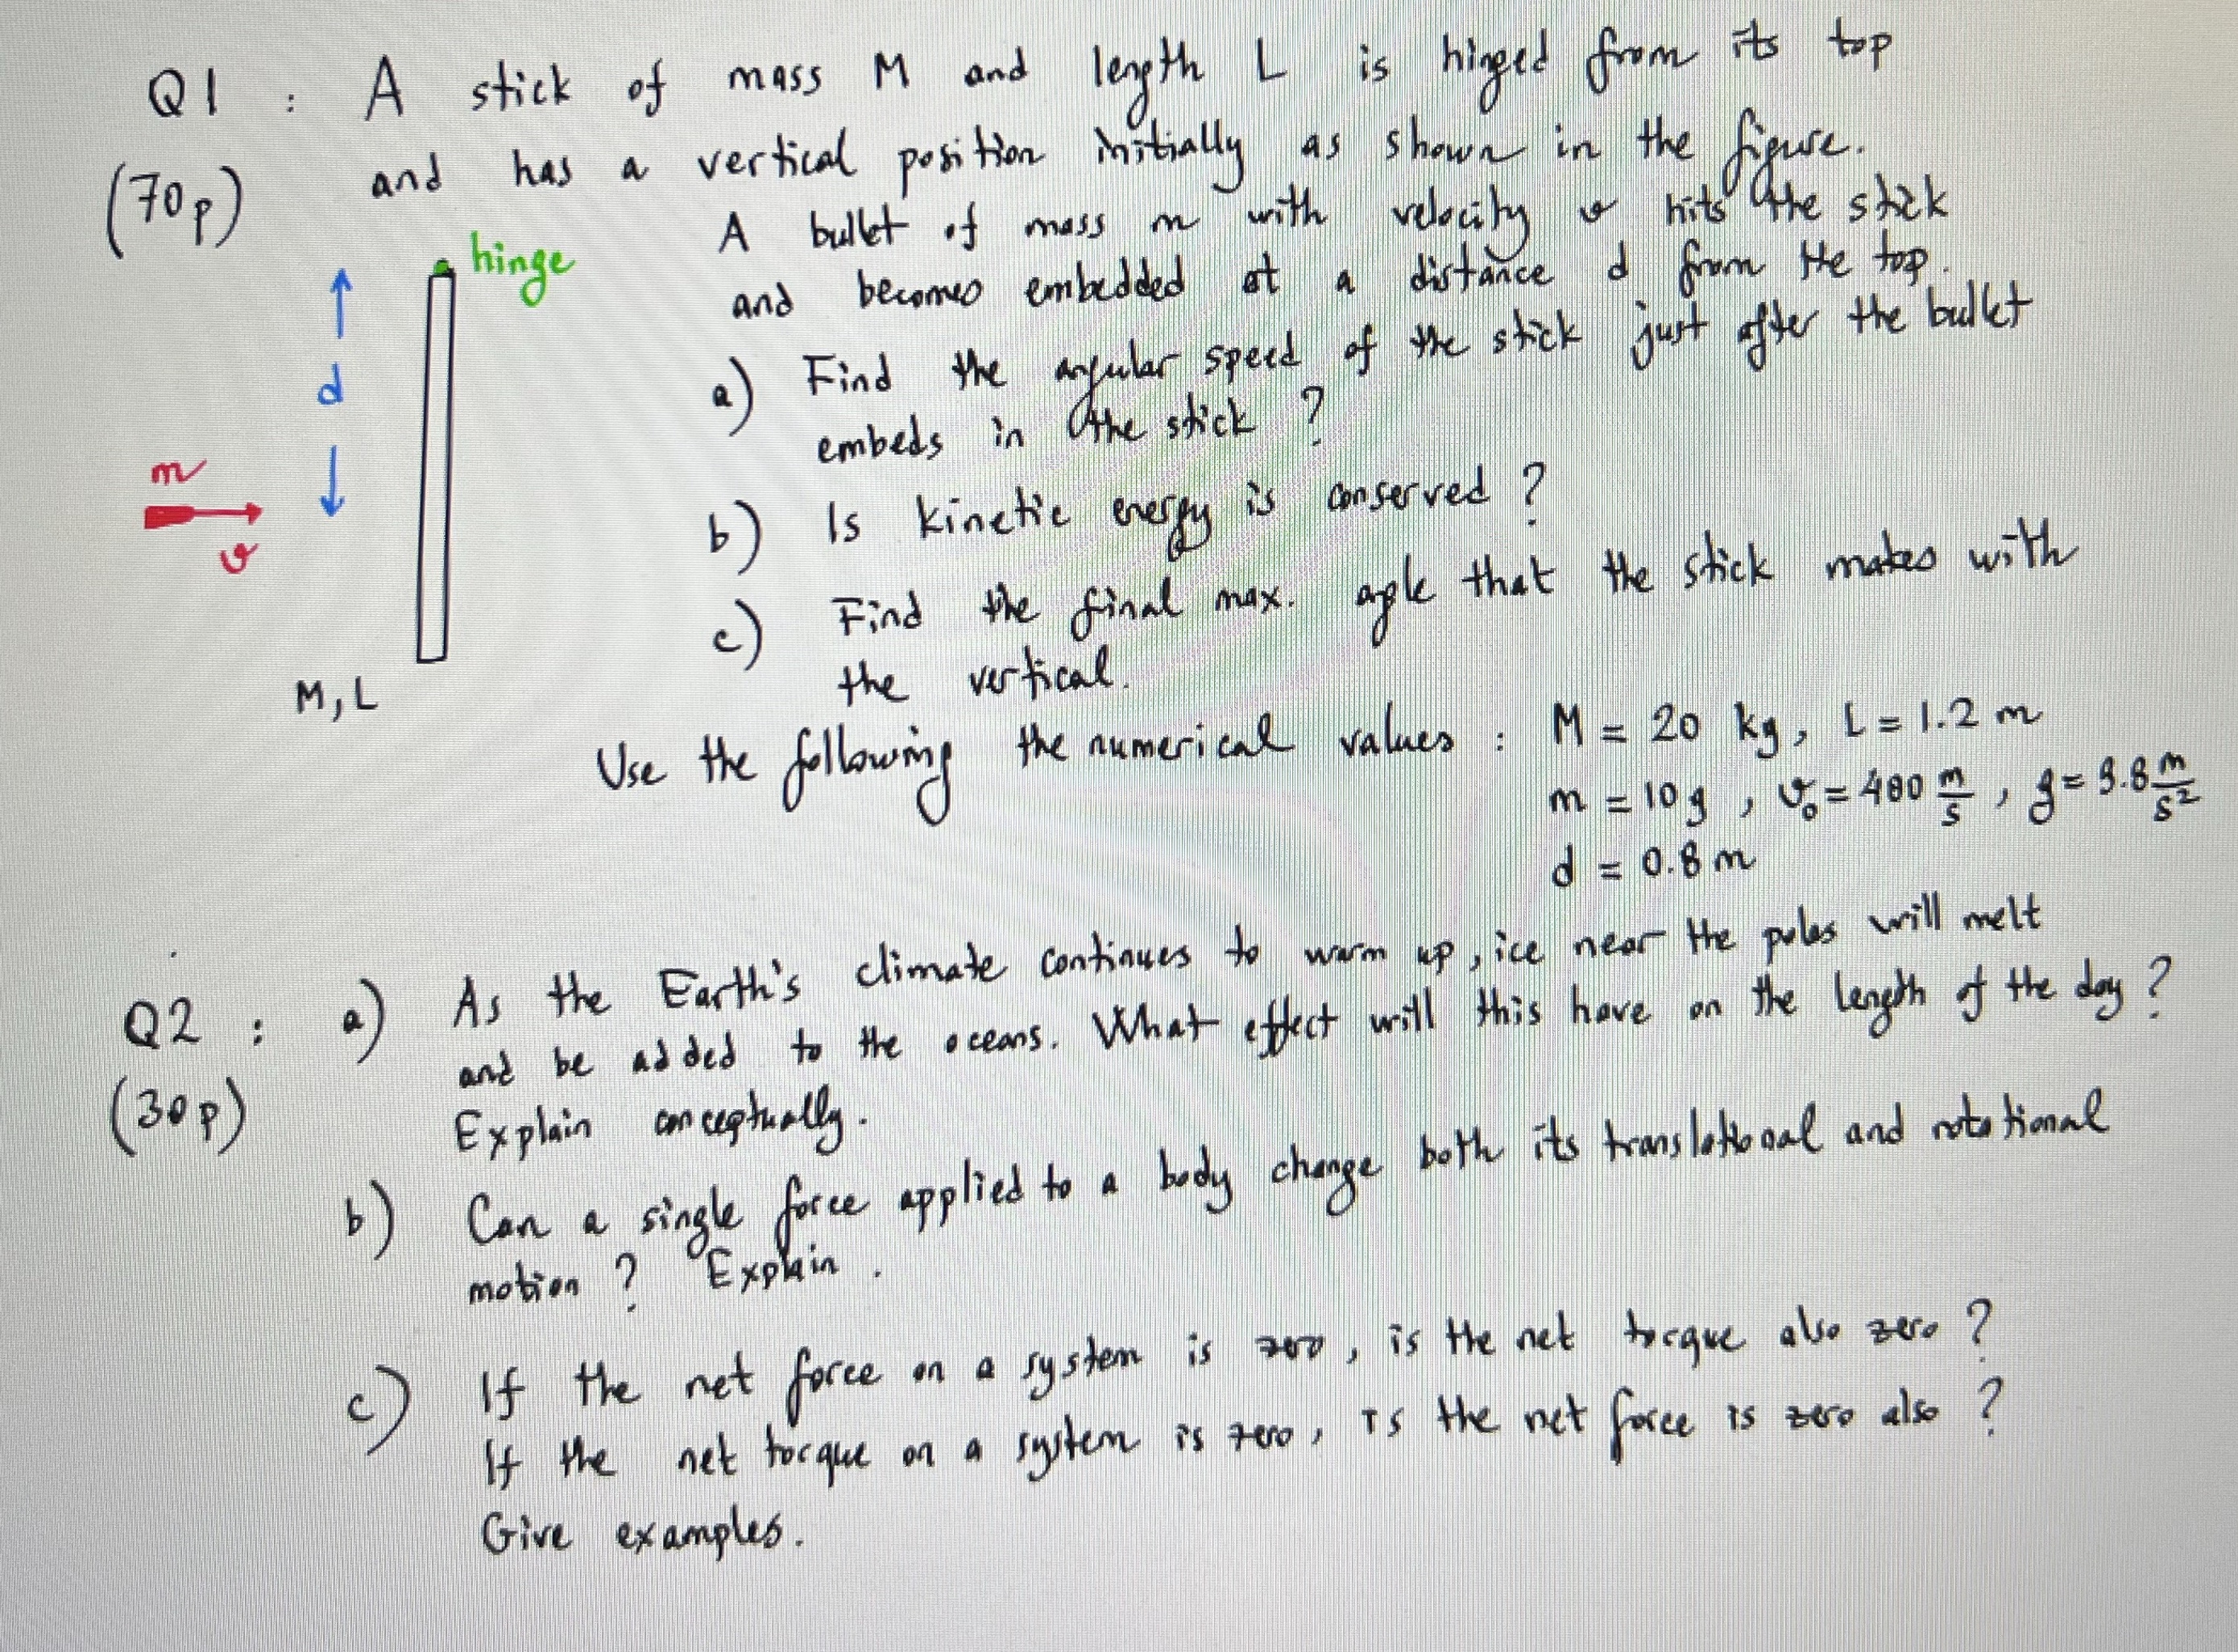 Q1 : A stick of mass M and length L is hinged from its top
(70p) and has a vertical position initially as shown in the figure.
A bullet of mass m with velocity v hits the stick
and becomes embedded at a distance d from the top.
hinge
d
m
v
M, L
a) Find the angular speed of the stick just after the bullet
embeds in the stick ?
b) Is kinetic energy is conserved ?
c) Find the final max. agle that the stick makes with
the vertical.
Use the following the numerical values : M = 20 kg, L = 1.2 m
m = 10 g , v₀ = 400 m/s , g = 9.8 m/s²
d = 0.8 m
Q2 : a) As the Earth's climate continues to warm up, ice near the poles will melt
(30p) and be added to the oceans. What effect will this have on the length of the day ?
Explain conceptually.
b) Can a single force applied to a body change both its translational and rotational
motion ? Explain .
c) If the net force on a system is zero, is the net torque also zero ?
If the net torque on a system is zero, is the net force is zero also ?
Give examples.